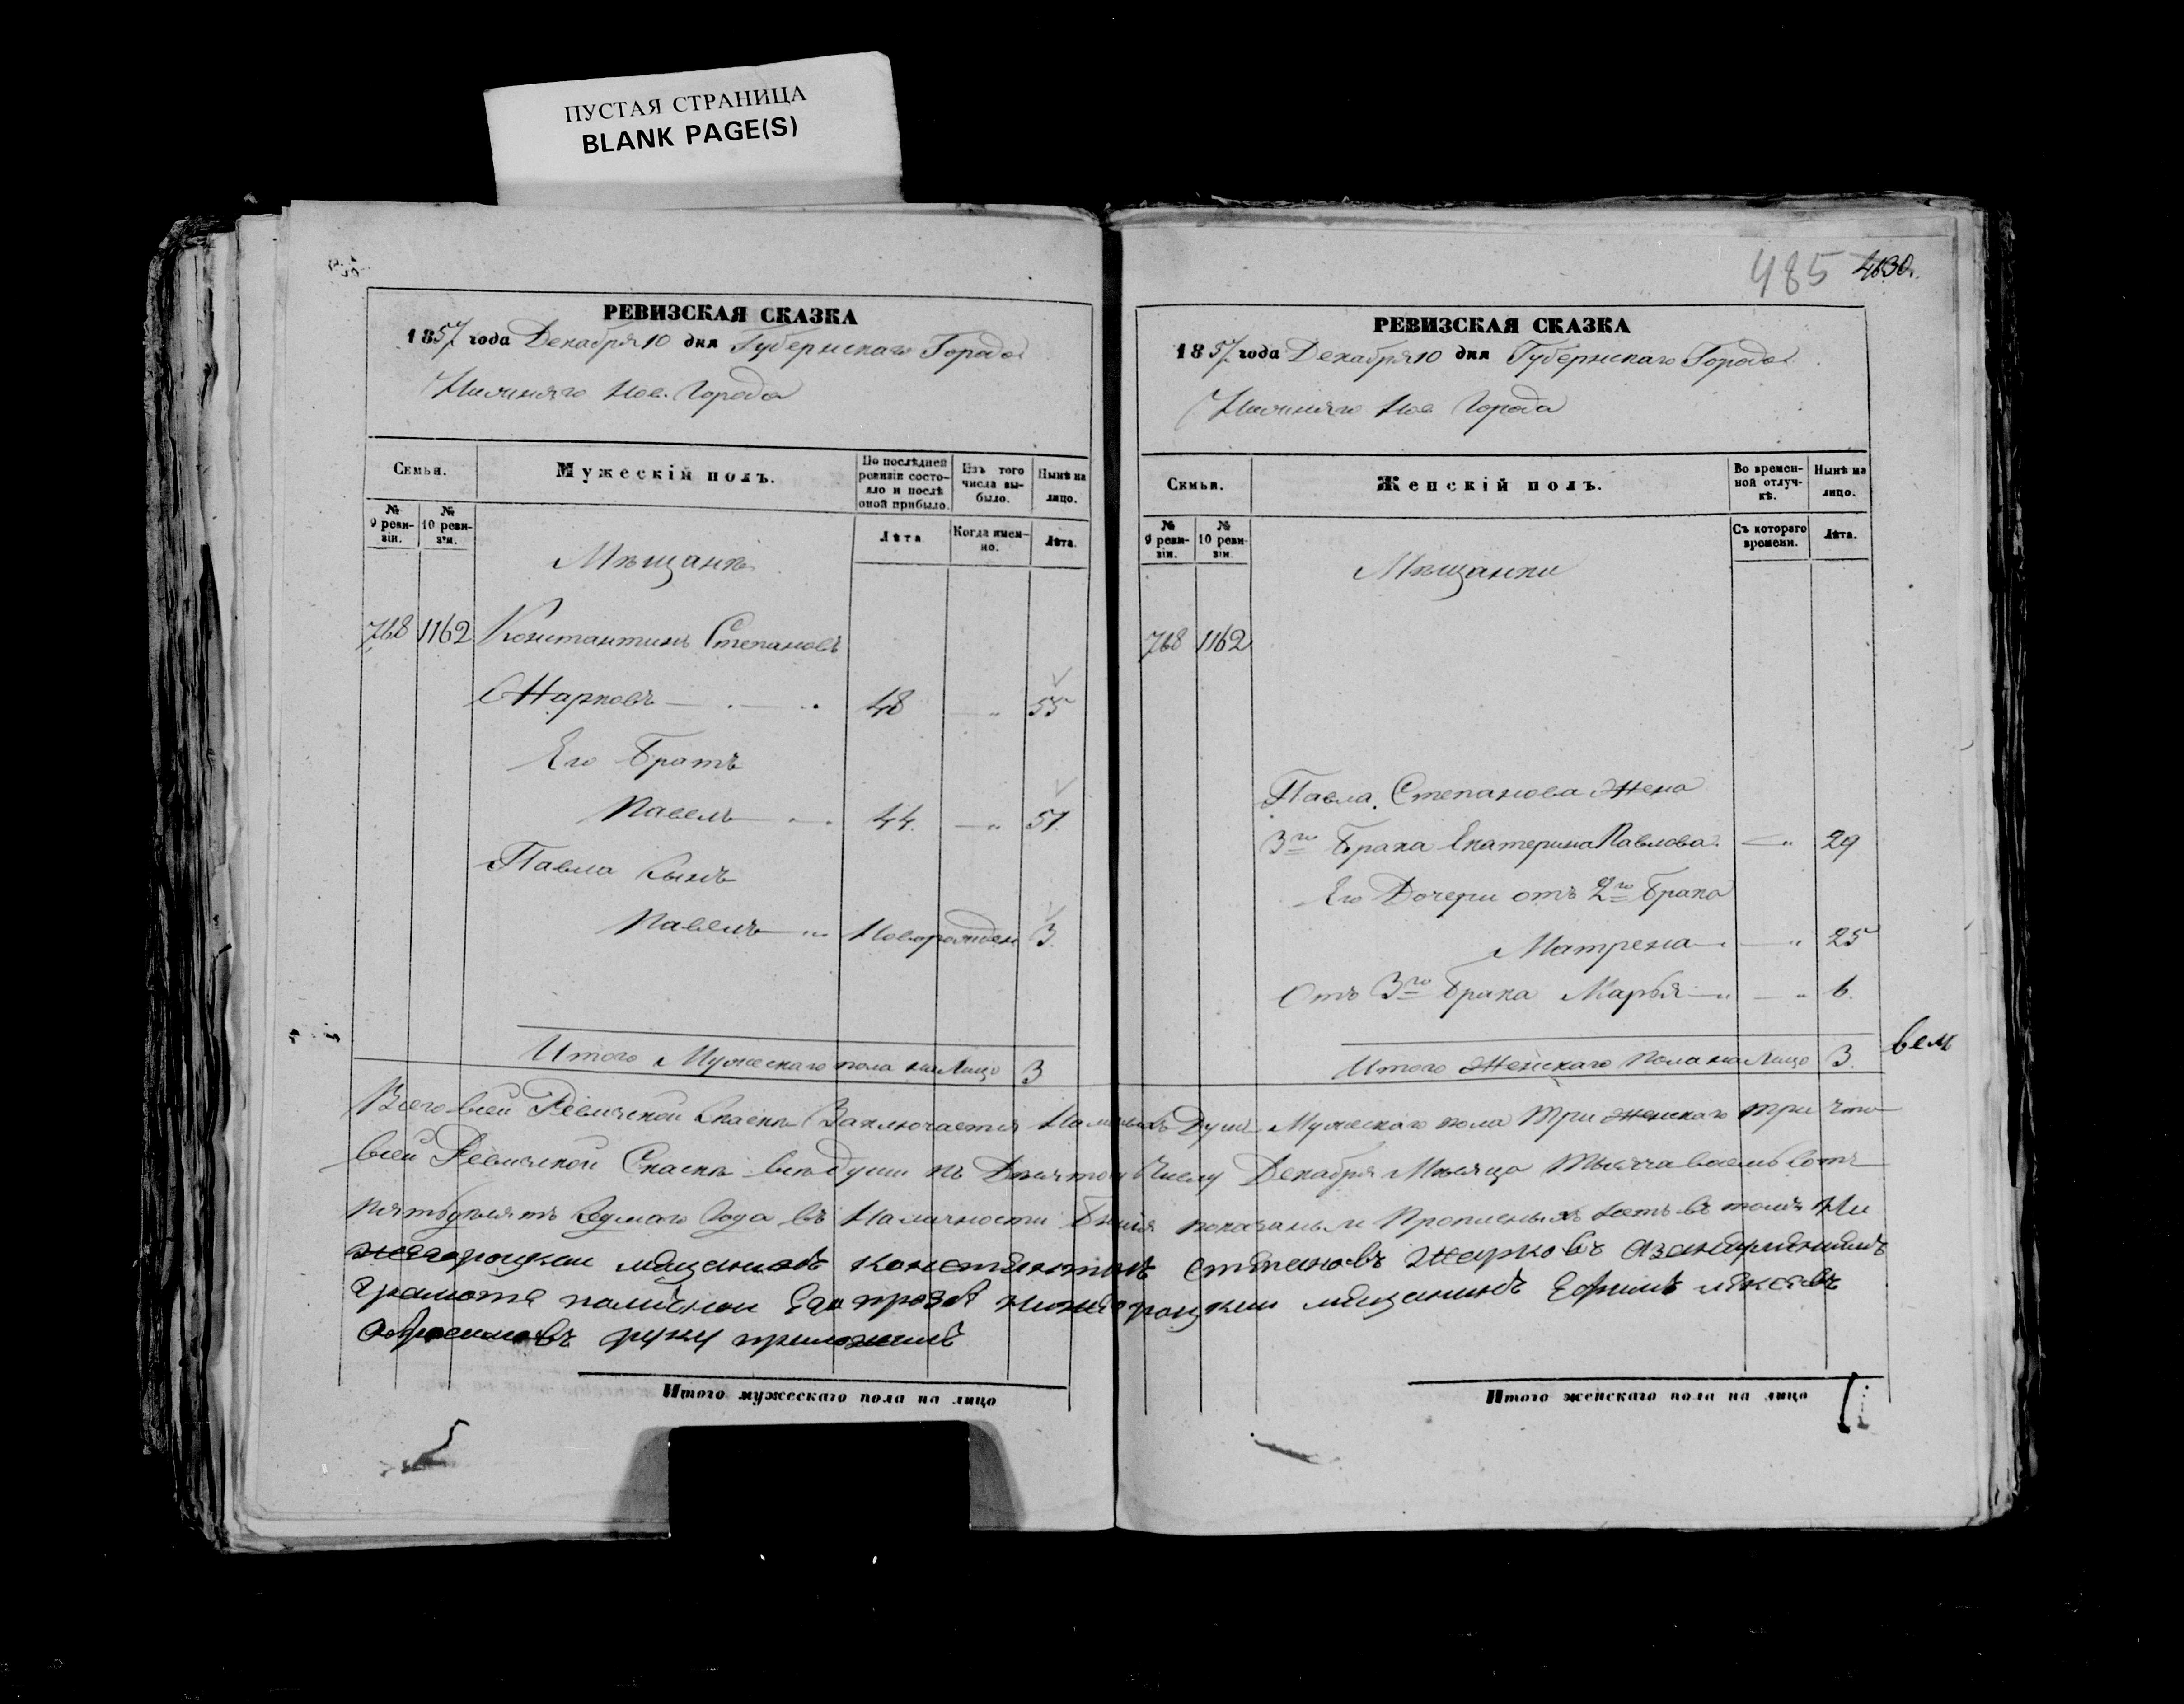 ПУСТАЯ СТРАНИЦА
BLANK PAGE(S)
РЕВИЗСКАЯ СКАЗКА
1857 года Декабря 10 дня Губернскаго Города
Нижняго Нов. Города
Семья.
Мужескій полъ.
По послѣдней ревизіи состояло и послѣ оной прибыло.
Изъ того числа выбыло.
Нынѣ на лицо.
№ 9 ревизіи.
№ 10 ревизіи.
Лѣта
Когда именно.
Лѣта.
Мѣщанѣ
768 1162 Константинъ Степановъ
Жарковъ 48 55
Его Братъ
Павелъ 44. 51.
Павла Сынъ
Павелъ Новорожден 3.
Итого Мужескаго пола на Лицо 3
485 4630.
РЕВИЗСКАЯ СКАЗКА
1857 года Декабря 10 дня Губернскаго Города
Нижняго Нов Города
Семья.
Женскій полъ.
Во временной отлучкѣ.
Нынѣ на лицо.
№ 9 ревизіи.
№ 10 ревизіи.
Съ котораго времени.
Лѣта.
Мѣщанки
768 1162
Павла Степанова Жена
3го Брака Екатерина Павлова. 29
Его Дочери отъ 2го Брака
Матрена 25
Отъ 3го Брака Марья 6.
Итого Женскаго Пола на Лицо 3.
Всего въ сей Ревизской Сказкѣ Заключается Душъ Мужескаго пола Три женскаго три Что
всей Ревизской Сказкѣ всѣ души къ Десятому Числу Декабря Мѣсяца Тысяча восемьсотъ
пятьдесятъ Седмаго Года въ Наличности показаны и Прописныхъ нетъ въ томъ Ни
жегороцкии мещанинъ Константинъ Степановъ Жарковъ
Грамоте Его прозбе нижегороцкии мещанинъ Ефимъ
руку приложилъ
Итого мужескаго пола на лицо
Итого женскаго пола на лицо